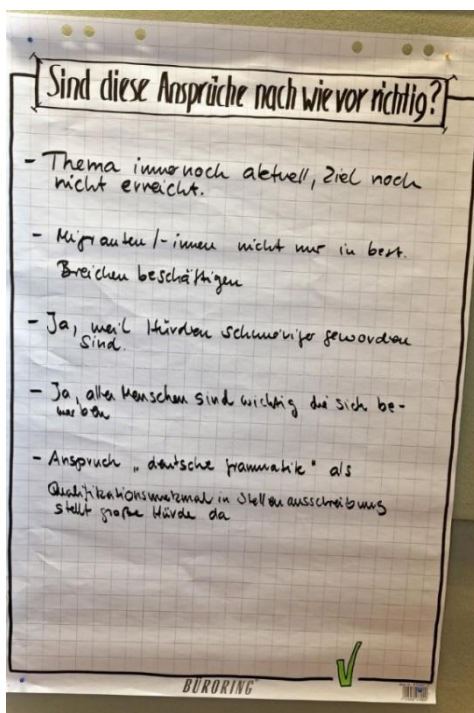 Sind diese Ansprüche nach wie vor richtig?
- Thema immer noch aktuell, Ziel noch
nicht erreicht.
- Migranten/-innen nicht nur in best.
Breichen beschäftigen
- Ja, weil Hürden schwieriger geworden
sind.
- Ja, alle Menschen sind wichtig die sich be-
werben
- Anspruch „deutsche Grammatik" als
Qualifikationsmerkmal in Stellenausschreibung
stellt große Hürde da
BÜRORING